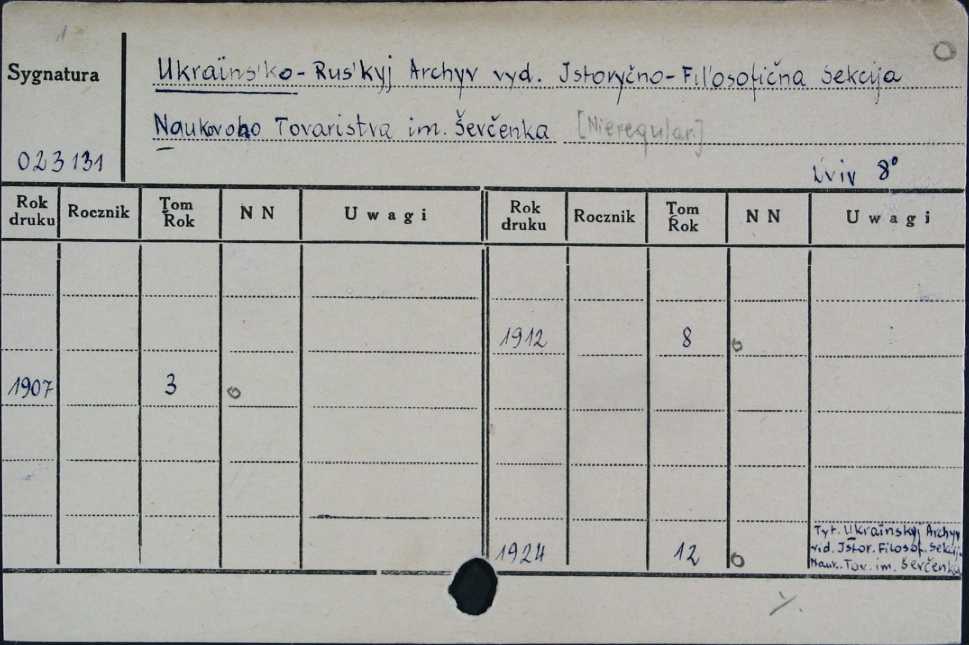 Sygnatura
Ukraïns'ko-Rus'kyj Archyv vyd. Istoryčno-Fil'osofična Sekcija
Naukovoho Tovaristva im. Ševčenka [Nieregular.]
023131
Lviv 8°
Rok druku Rocznik Tom Rok NN Uwagi Rok druku Rocznik Tom Rok NN Uwagi
1912 8 0
1907 3 0
1924 12 0
Tyt. Ukraïnskyj Archyv
vid. Istor. Filosof. Sekcij.
Nauk. Tov. im. Ševčenka